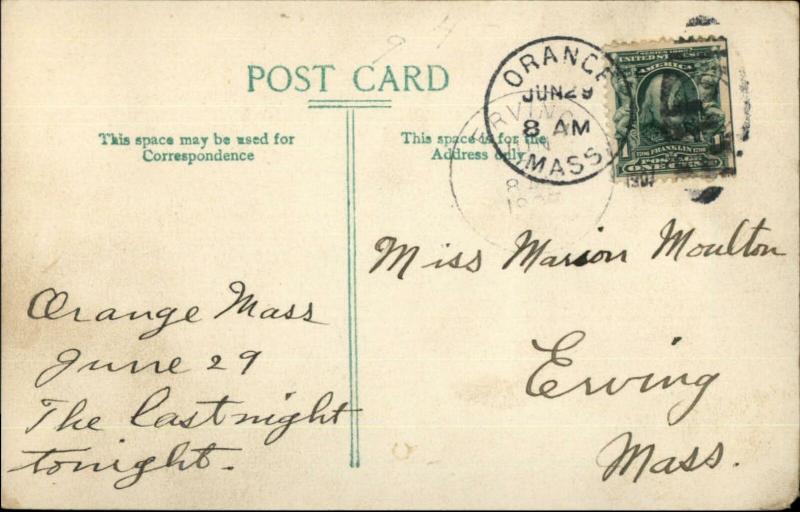 POST CARD
This space may be used for
Correspondence
This space is for the
Address only
ORANGE
JUN 29
8 AM
MASS
UNITED STATES OF
AMERICA
FRANKLIN
POSTAGE
ONE CENT
Miss Marion Moulton
Erving
Mass.
Orange Mass
June 29
The last night
tonight.